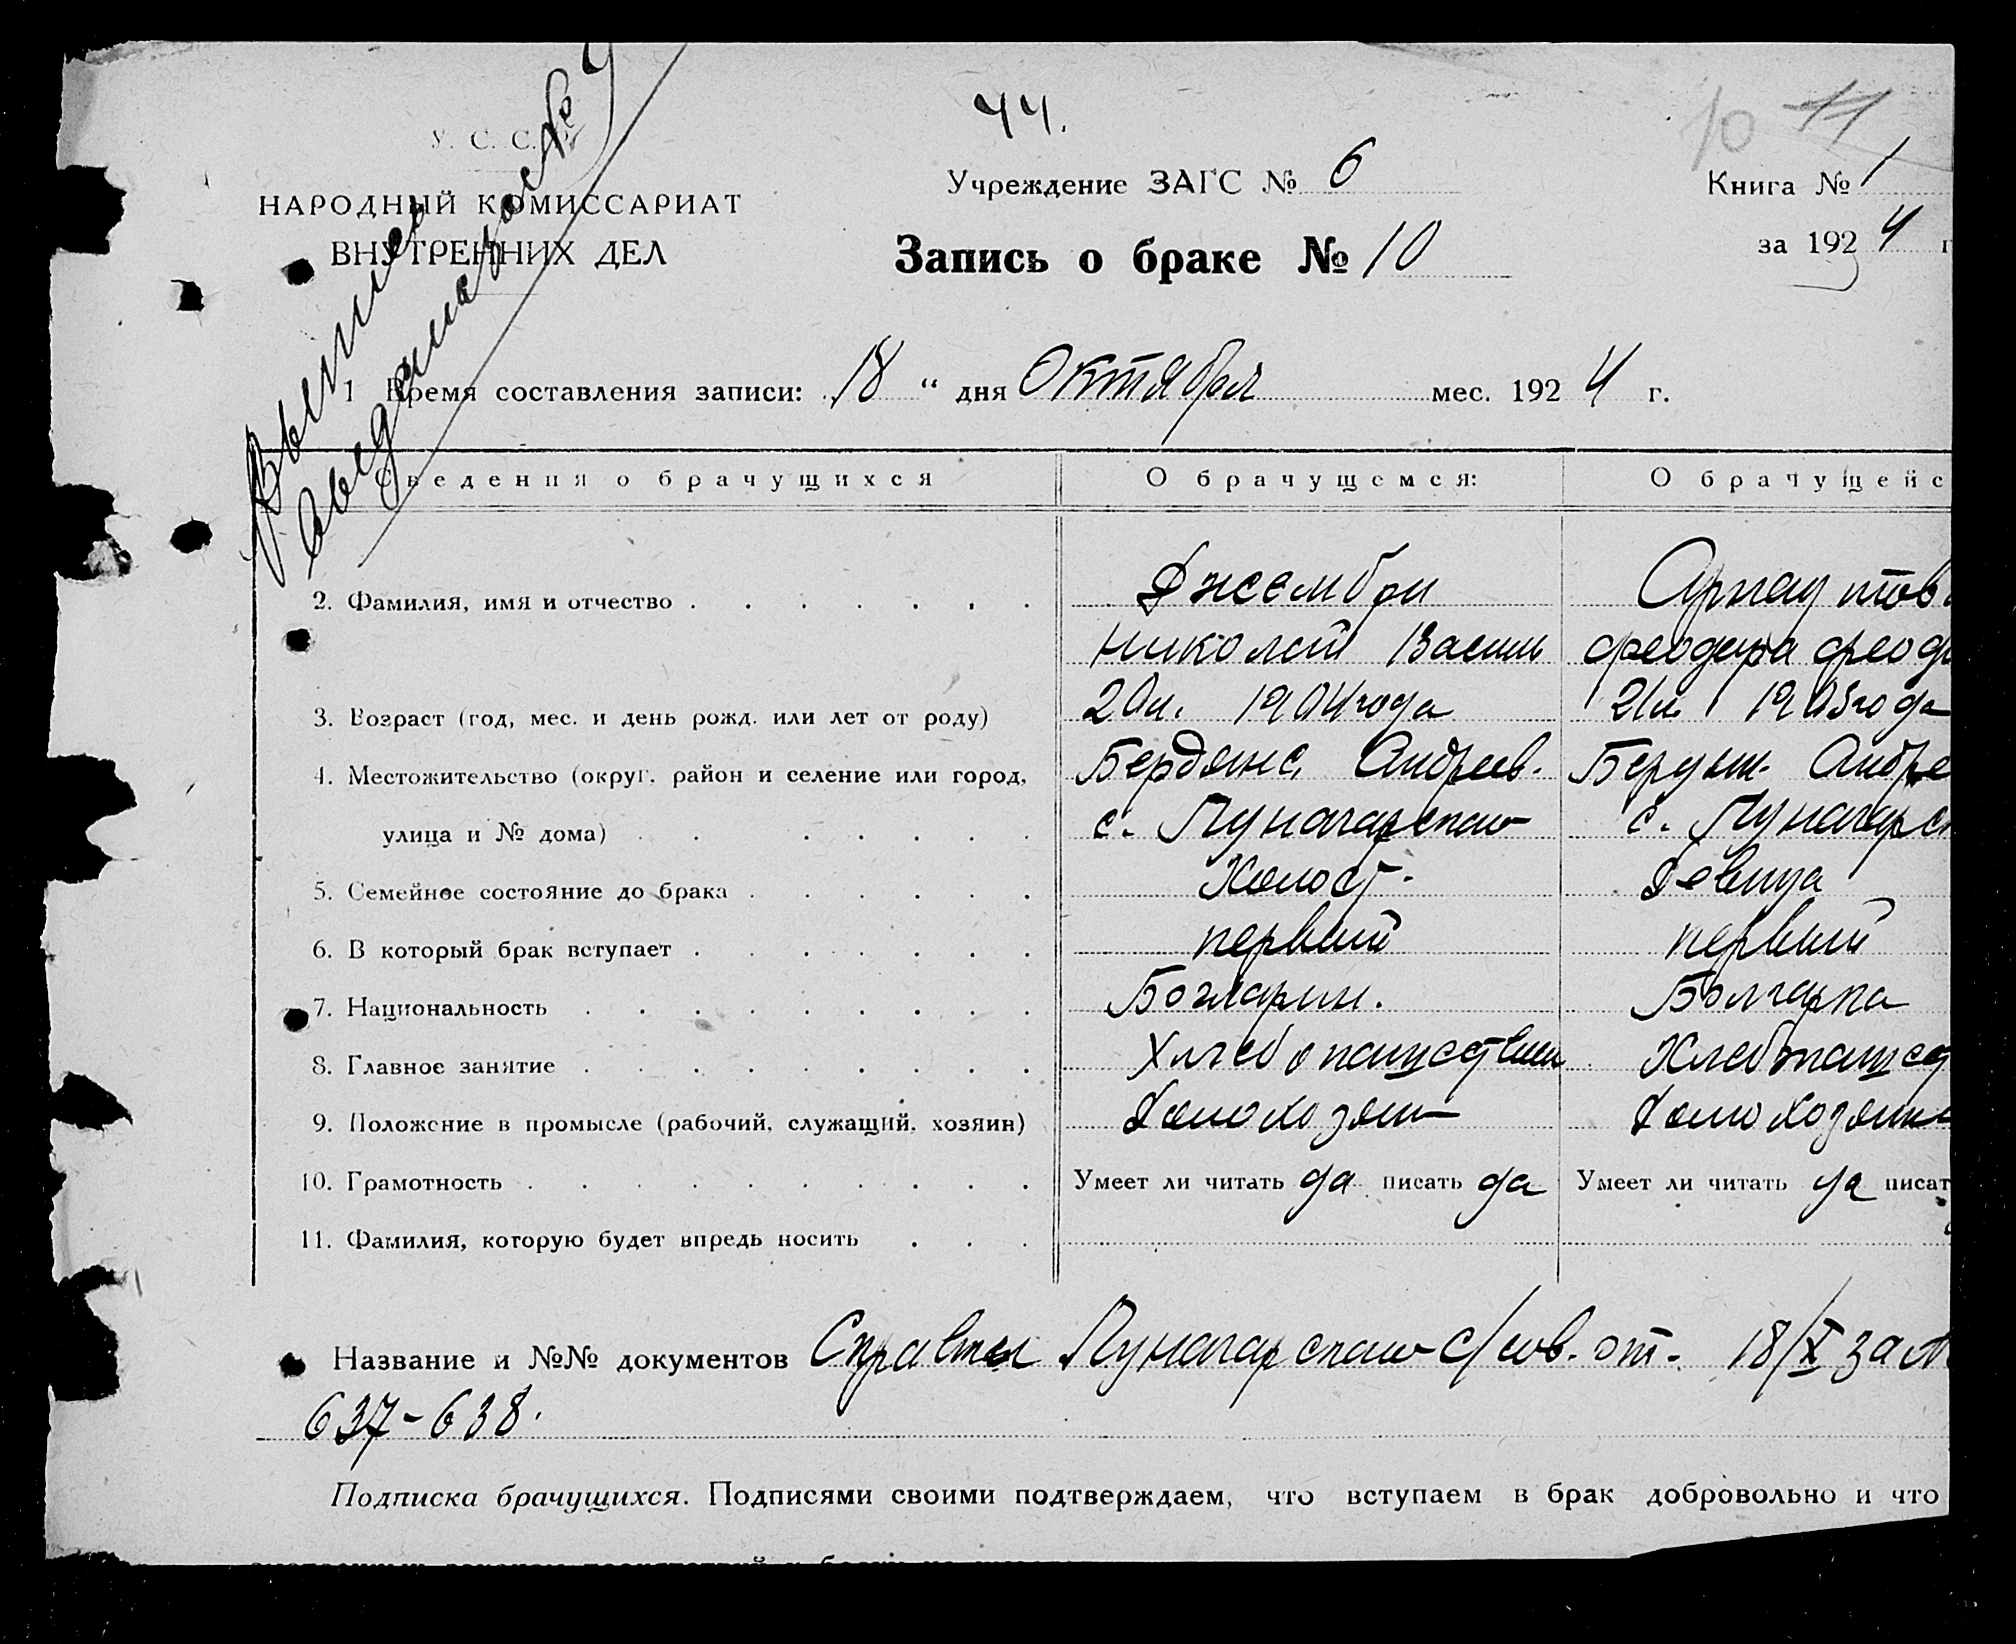 44.
10 11
У. С. С. Р.
НАРОДНЫЙ КОМИССАРИАТ
ВНУТРЕННИХ ДЕЛ
Учреждение ЗАГС № 6
Запись о браке № 10
Книга № 1
за 1924 г
1 Время составления записи: 18 " дня Октября мес. 1924 г.
Сведения о брачущихся О брачущемся: О брачущейс
2. Фамилия, имя и отчество Джембри Арнаутов
Николай Васил Феодора Феод
3. Возраст (год, мес. и день рожд. или лет от роду) 20л. 1904 года 21л. 1903 года
4. Местожительство (округ, район и селение или город, Бердянс. Андреев. Бердян. Андре
улица и № дома) с. Луначарское с. Луначарск
5. Семейное состояние до брака Холост. Девица
6. В который брак вступает первый первый
7. Национальность Болгарин. Болгарка
8. Главное занятие Хлебопашествен Хлебопашест
9. Положение в промысле (рабочий, служащий, хозяин) Домохозяин Домохозяин
10. Грамотность Умеет ли читать да писать да Умеет ли читать да писат
11. Фамилия, которую будет впредь носить
Название и №№ документов Справки Луначарского с/сов. от. 18/X за №
637-638.
Подписка брачущихся. Подписями своими подтверждаем, что вступаем в брак добровольно и что